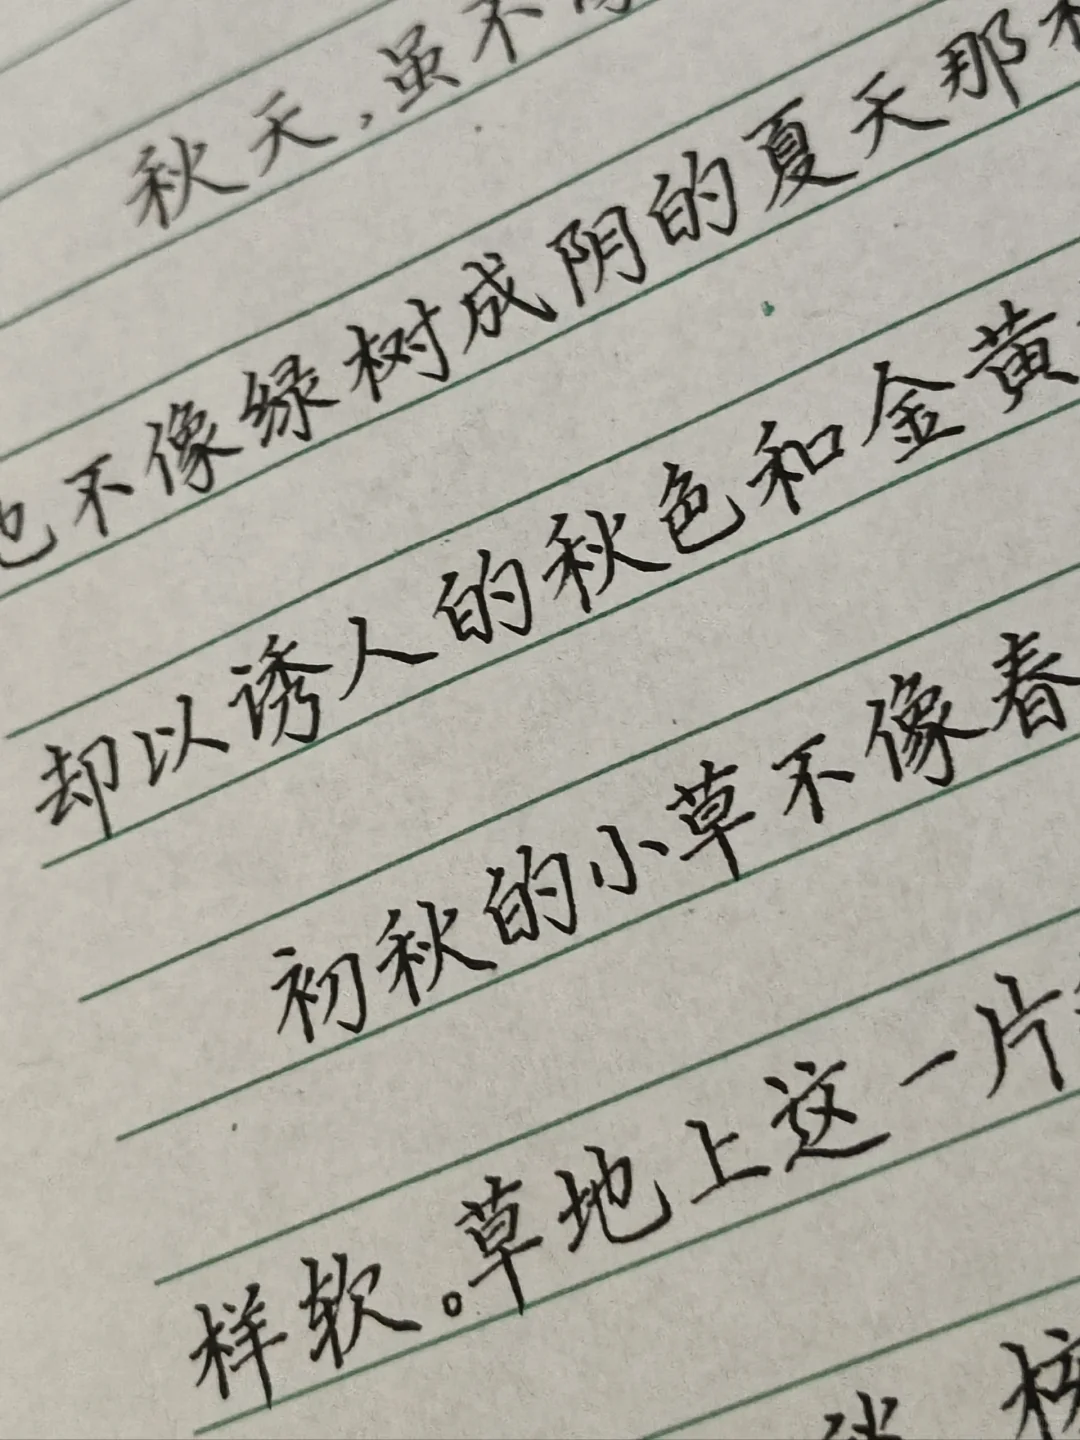 秋天,虽不像
也不像绿树成阴的夏天那
却以诱人的秋色和金黄
初秋的小草不像春
样软。草地上这一片
秋